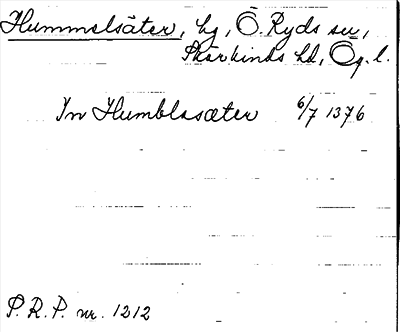 Hummelsäter, hg, Ö. Ryds sn,
Skärkinds hd, Ög. l.
In Humblasæter 6/7 1376
P. R. P. nr. 1212